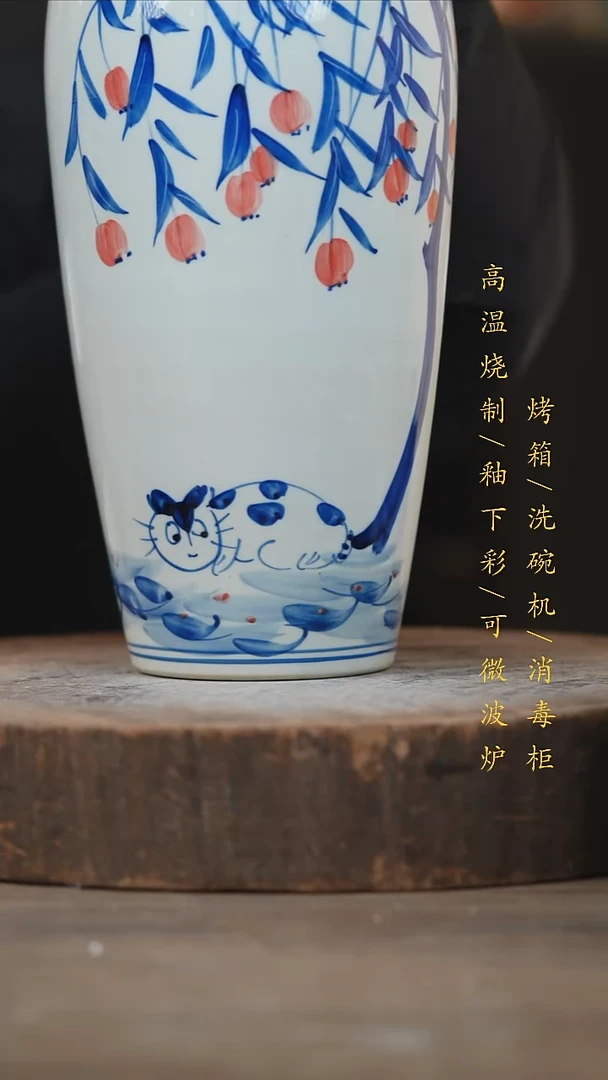 高温烧制/釉下彩/可微波炉
烤箱/洗碗机/消毒柜